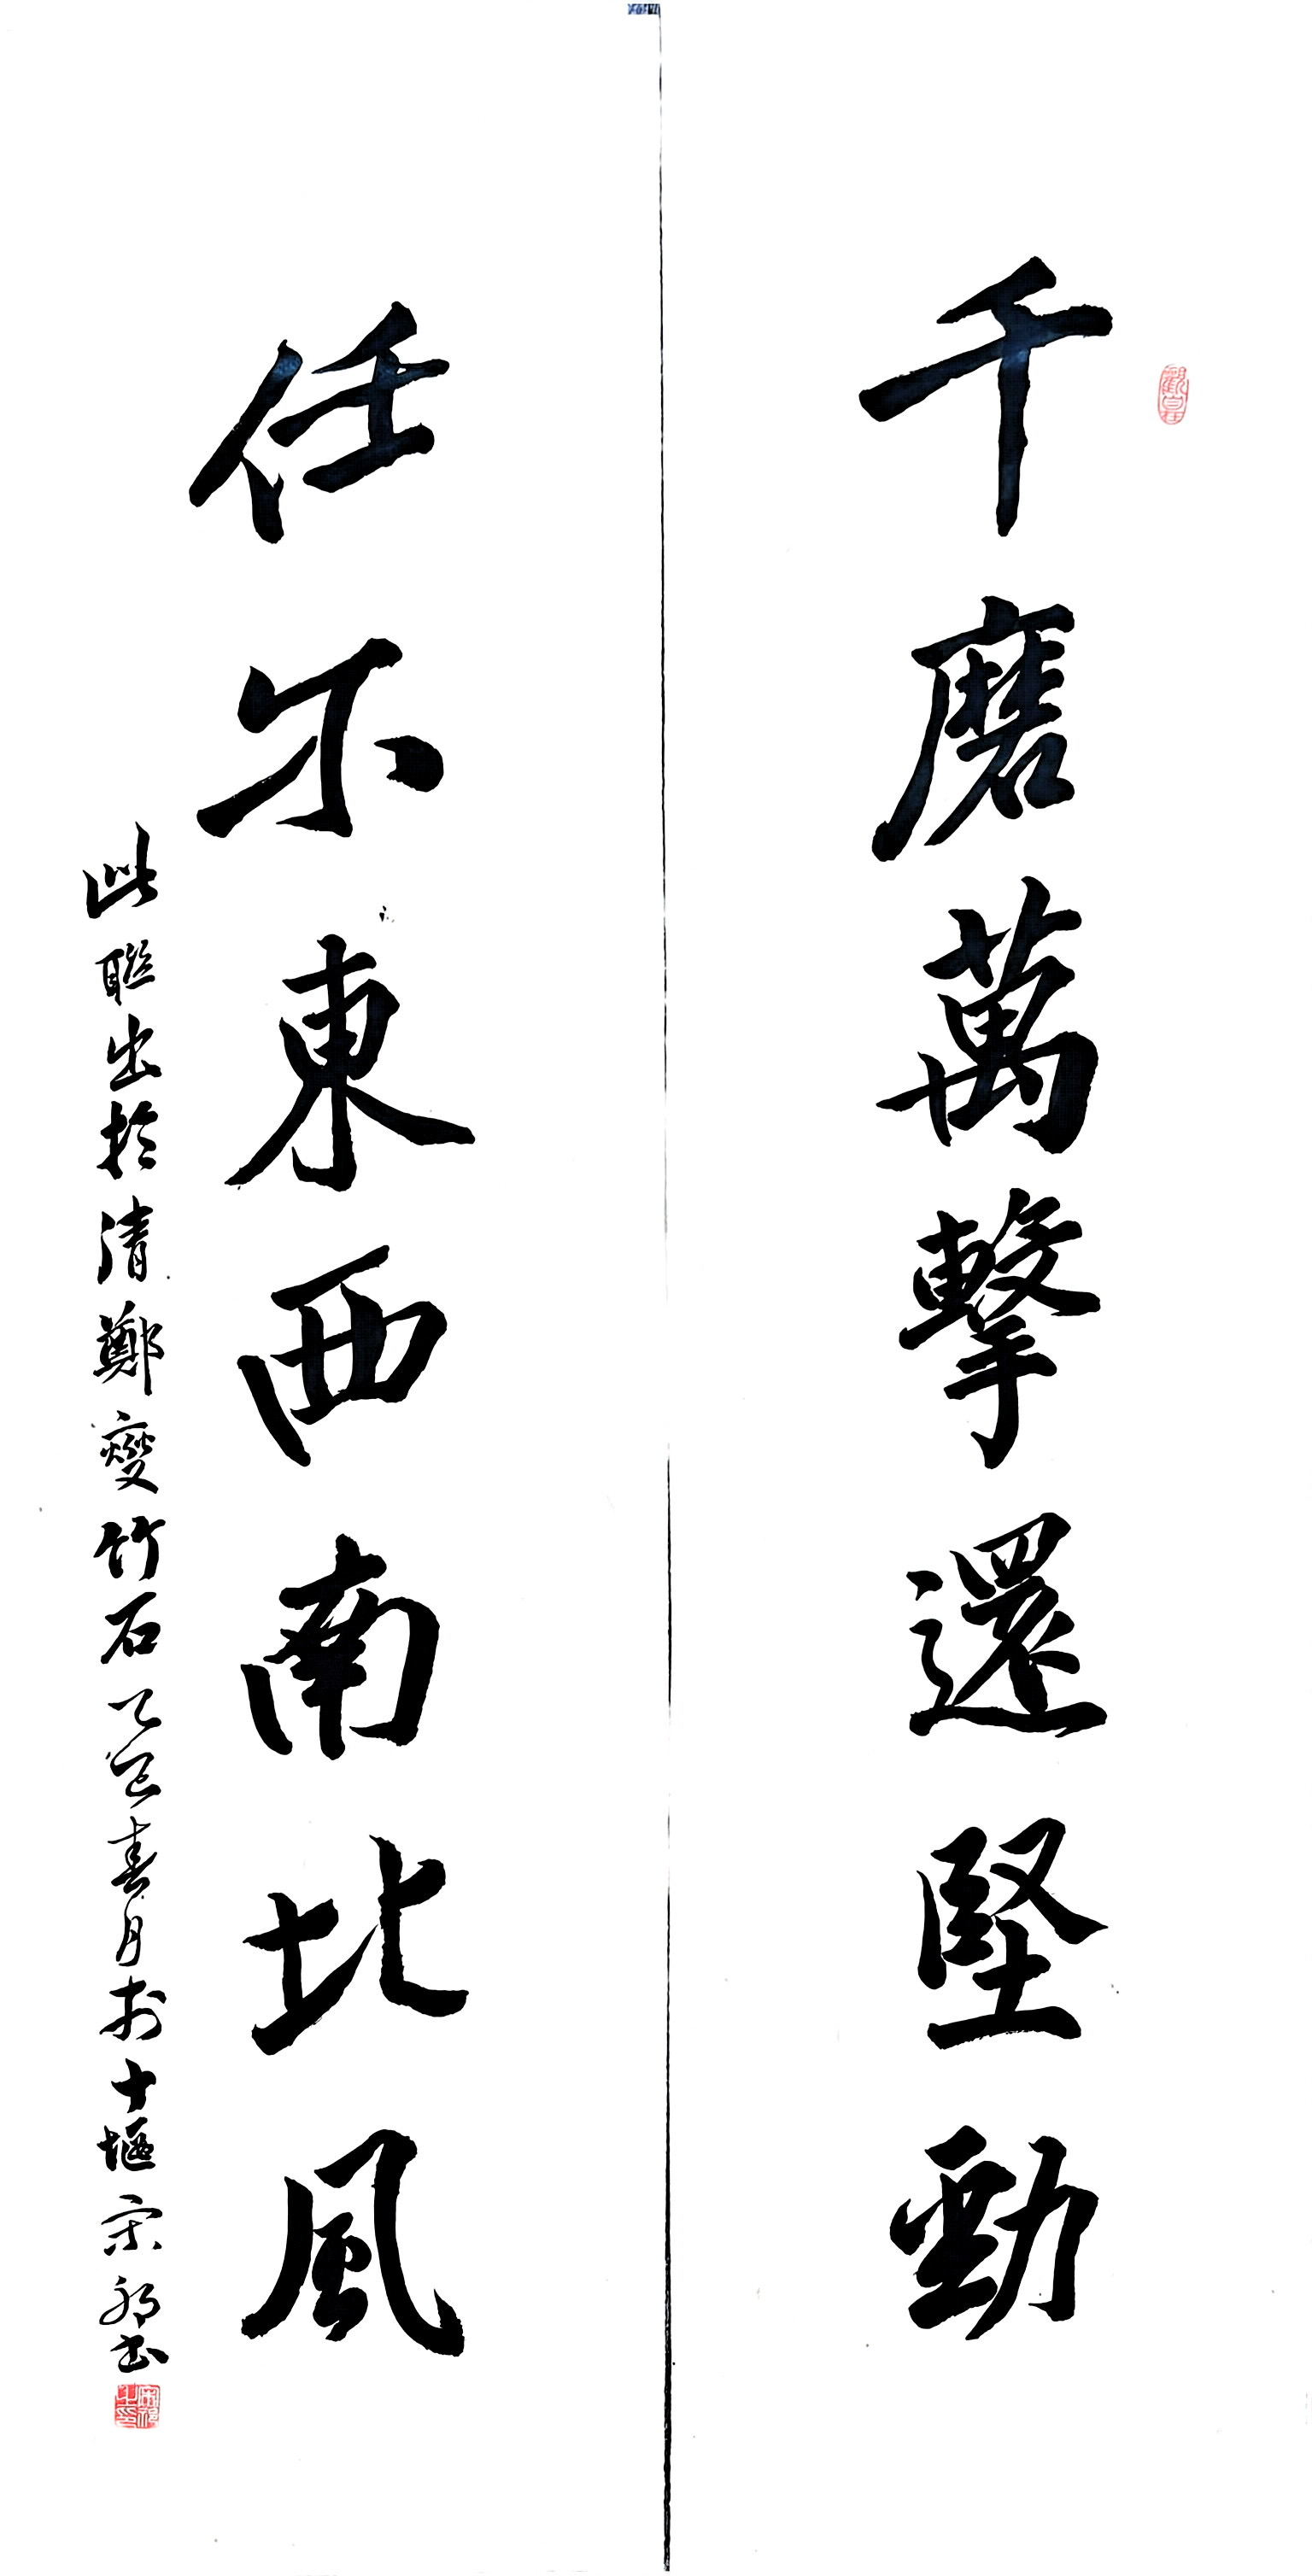 千磨萬擊還堅勁
任尔東西南北風
此聯出於清鄭燮竹石乙巳春月於十堰宋祁書
觀自在